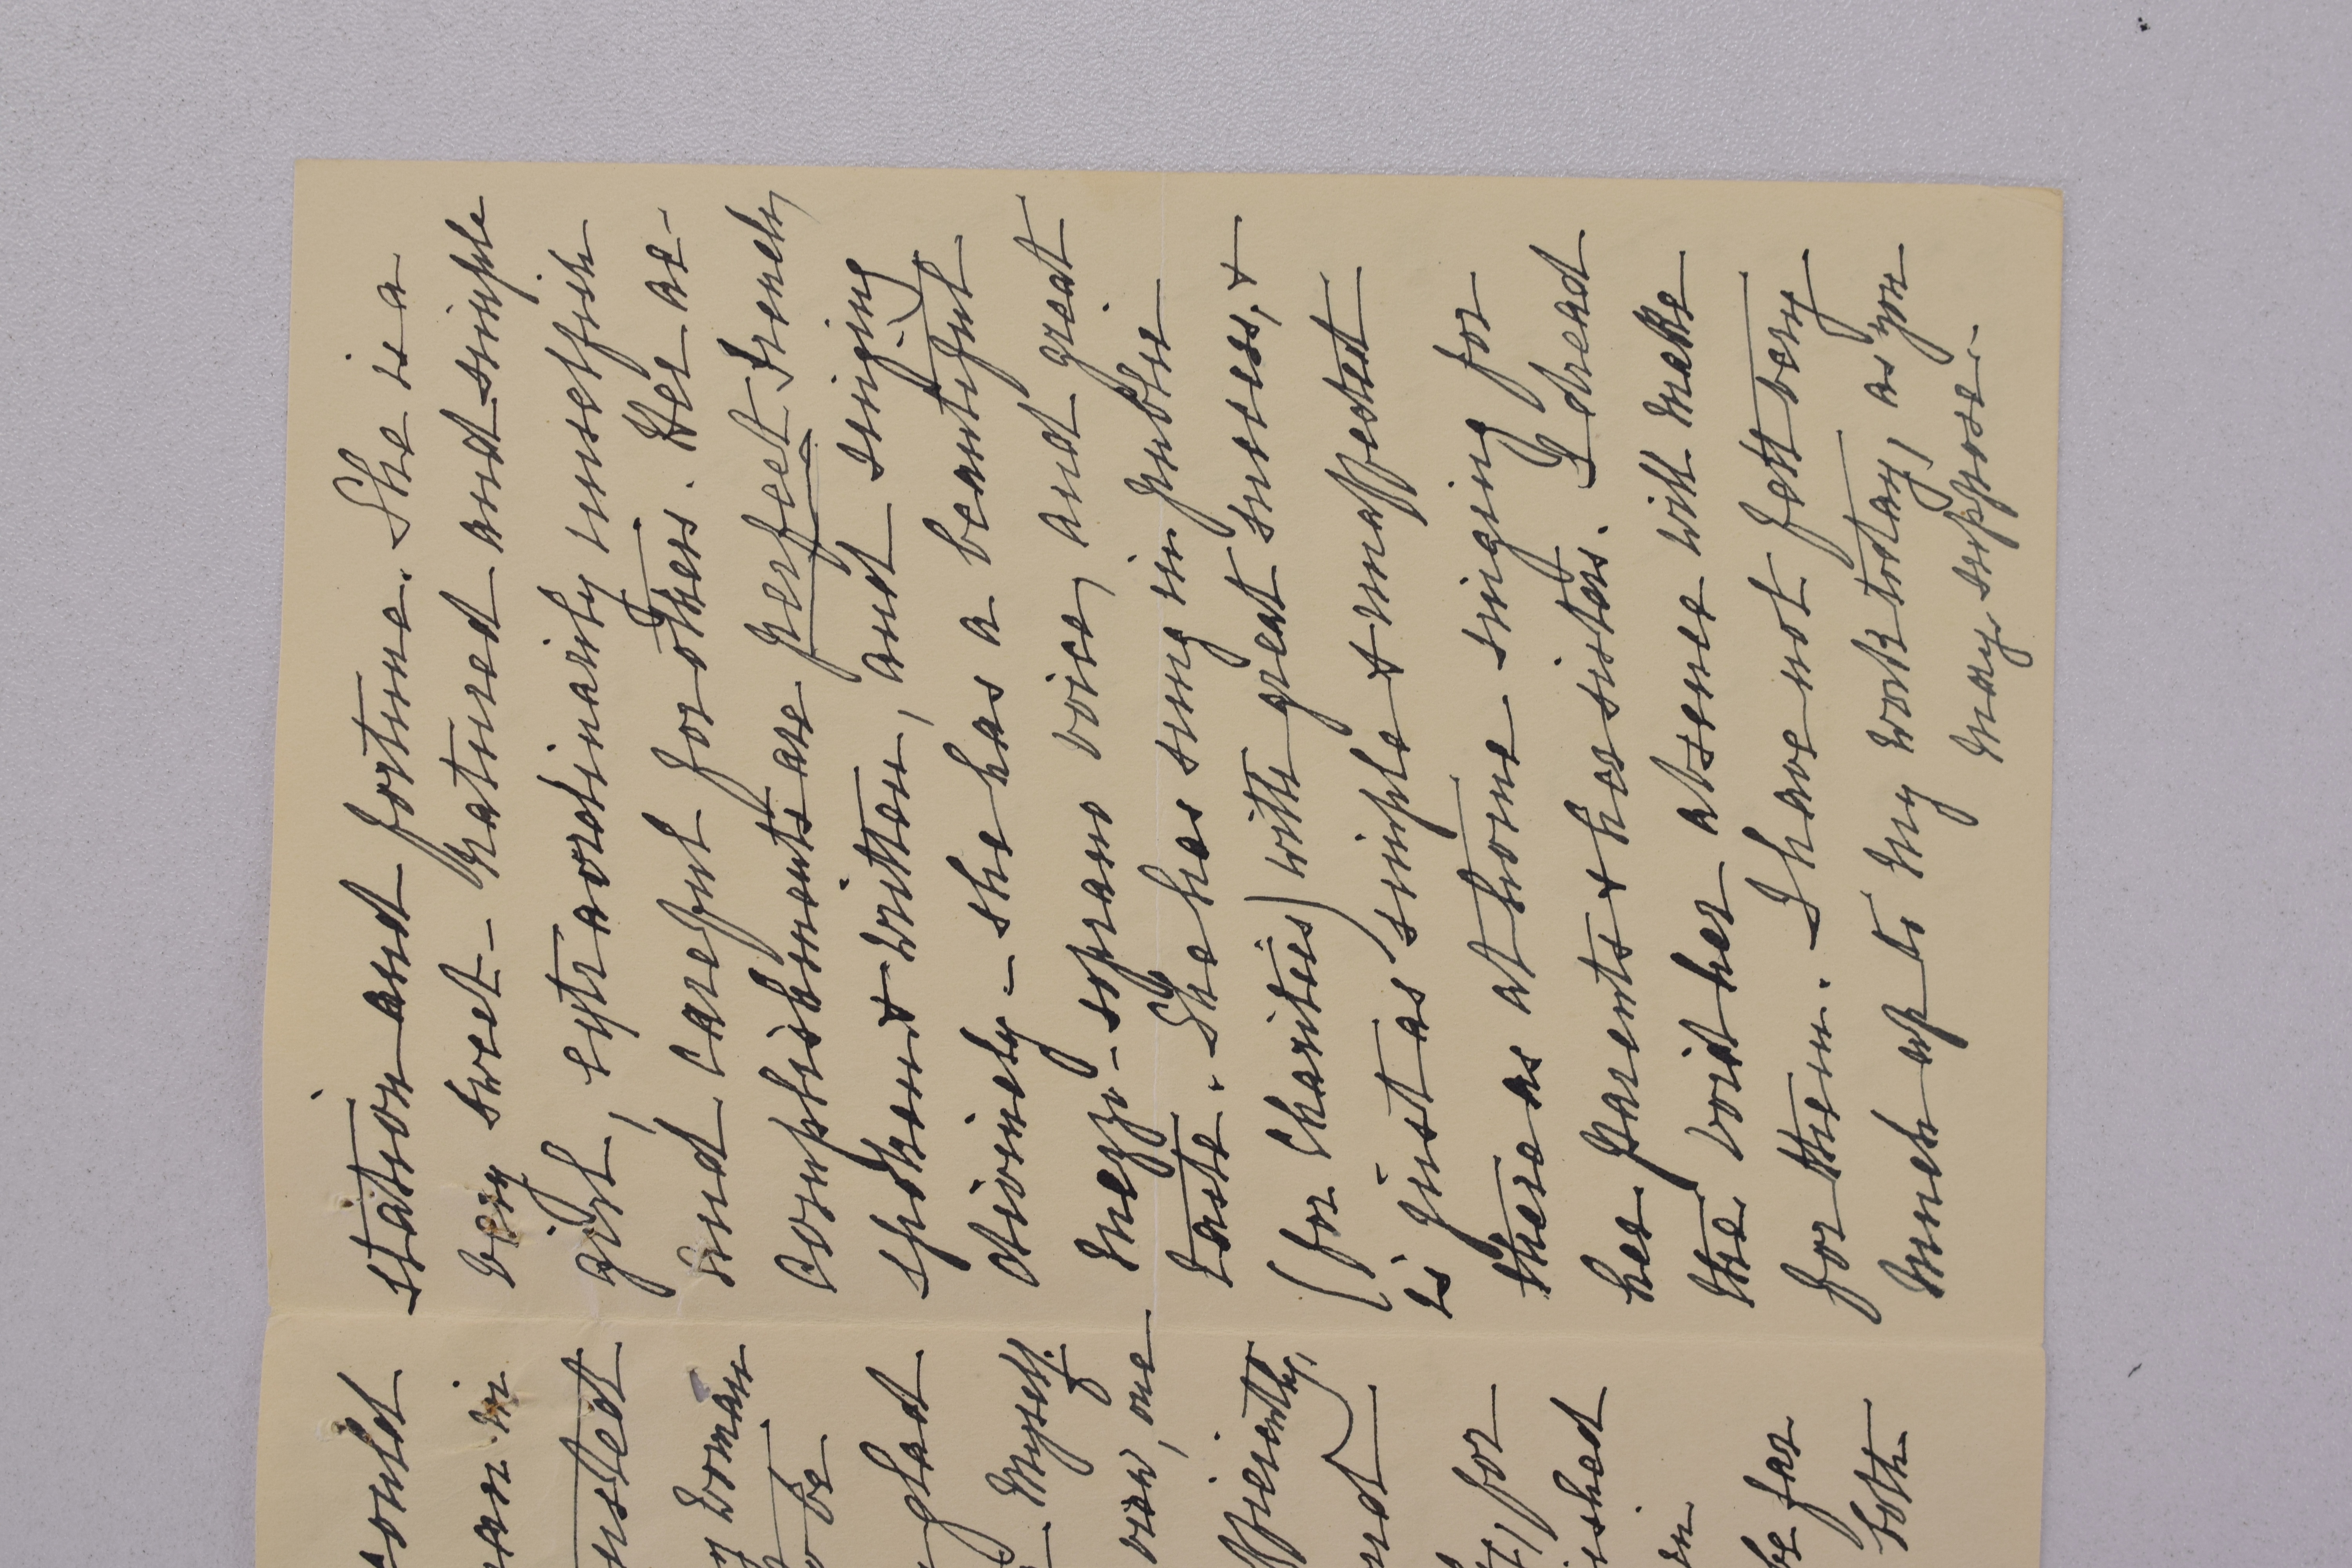 could
man in
usted
woman
be
glad
myself.
own, one
fficiently,
and
for
ished
in
be far
both
station and fortune. She is a
very sweet-natured and simple
girl, extraordinarily unselfish
and careful for others. Her ac-
complishments are perfect French,
spoken & written, and singing
divinely – she has a beautiful
mezzo-soprano voice, and great
taste. She has sung in public
(for charities) with great success, &
is just as simple & unaffected
there as at home singing for
her parents & her sisters. I dread
the void her absence will make
for them. I have not felt very
much up to my work today, as you
may suppose.